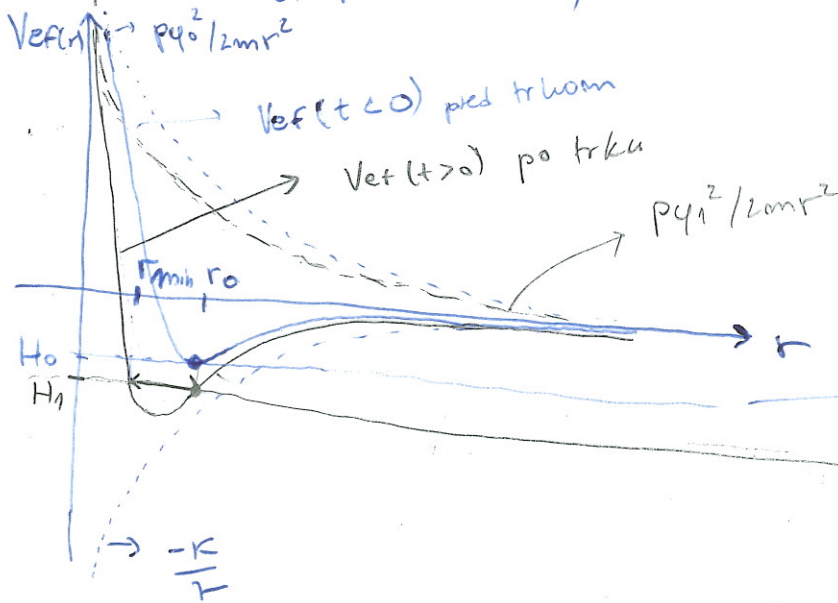 Vef(r)
pφ₀²/2mr²
Vef (t<0) pred trkom
Vef (t>0) po trku
pφ₁²/2mr²
rmin r₀
r
H₀
H₁
-K/r